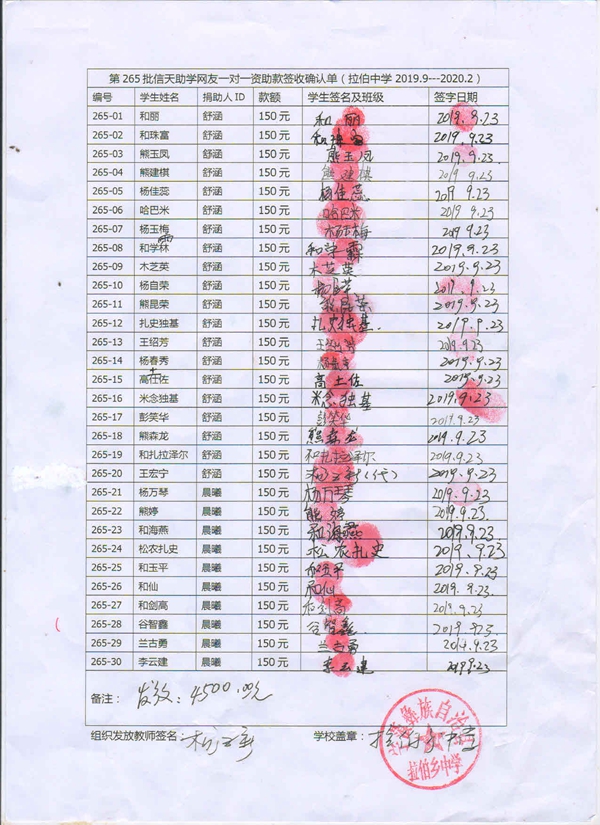 第265批信天助学网友一对一资助款签收确认单（拉伯中学 2019.9---2020.2）
编号 学生姓名 捐助人ID 款额 学生签名及班级 签字日期
265-01 和丽 舒涵 150元 和丽 2019.9.23
265-02 和珠富 舒涵 150元 和珠富 2019.9.23
265-03 熊玉凤 舒涵 150元 熊玉凤 2019.9.23
265-04 熊建棋 舒涵 150元 熊建棋 2019.9.23
265-05 杨佳蕊 舒涵 150元 杨佳蕊 2019 9.23
265-06 哈巴米 舒涵 150元 哈巴米 2019 9.23
265-07 杨玉梅 舒涵 150元 杨玉梅 2019 9.23
265-08 和学林 舒涵 150元 和学霖 2019.9.23
265-09 木芝英 舒涵 150元 木芝英 2019.9.23
265-10 杨自荣 舒涵 150元 2019.9.23
265-11 熊昆荣 舒涵 150元 熊昆荣 2019.9.23
265-12 扎史独基 舒涵 150元 扎史独基. 2019.9.23
265-13 王绍芳 舒涵 150元 2019.9.23
265-14 杨春秀 舒涵 150元 2019.9.23
265-15 高仕佐 舒涵 150元 高士佐 2019.9.23
265-16 米念独基 舒涵 150元 米念独基 2019.9.23
265-17 彭笑华 舒涵 150元 彭笑华 2019.9.23
265-18 熊森龙 舒涵 150元 熊森龙 2019.9.23
265-19 和扎拉泽尔 舒涵 150元 和扎拉泽尔 2019.9.23
265-20 王宏宁 舒涵 150元 (代) 2019.9.23
265-21 杨万琴 晨曦 150元 杨万琴 2019.9.23
265-22 熊婷 晨曦 150元 熊婷 2019.9.23
265-23 和海燕 晨曦 150元 和海燕 2019.9.23
265-24 松农扎史 晨曦 150元 松农扎史 2019.9.23
265-25 和玉平 晨曦 150元 和玉平 2019.9.23
265-26 和仙 晨曦 150元 和仙 2019.9.23
265-27 和剑高 晨曦 150元 和剑高 2019.9.23
265-28 谷智鑫 晨曦 150元 谷智鑫. 2019.9.23
265-29 兰古勇 晨曦 150元 兰古勇 2019.9.23
265-30 李云建 晨曦 150元 李云建 2019.9.23
备注： 发放：4500.00元
组织发放教师签名： 学校盖章：
彝族自治
拉伯乡中学